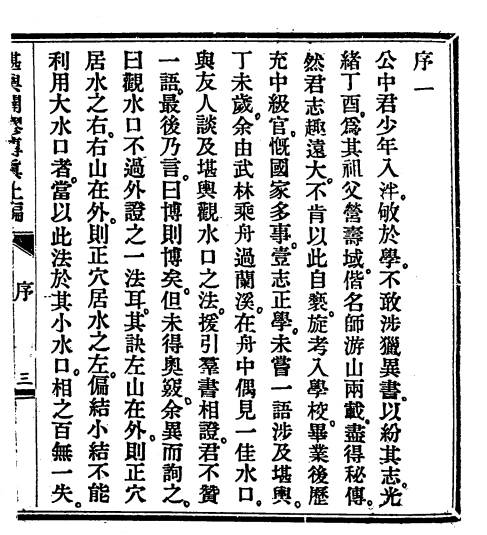 序一
公中君少年入泮。敏於學。不敢涉獵異書。以紛其志。光
緒丁酉。爲其祖父營壽域。偕名師游山兩載。盡得秘傳。
然君志趣遠大。不肯以此自褻。旋考入學校。畢業後歷
充中級官。慨國家多事。壹志正學。未嘗一語涉及堪輿。
丁未歲。余由武林乘舟過蘭溪。在舟中偶見一佳水口。
與友人談及堪輿觀水口之法。援引羣書相證。君不贊
一語。最後乃言曰。博則博矣。但未得奧竅。余異而詢之。
曰觀水口不過外證之一法耳。其訣左山在外。則正穴
居水之右。右山在外。則正穴居水之左。偏結小結不能
利用大水口者。當以此法於其小水口。相之百無一失。
堪輿闢謬傳眞上編
序
三